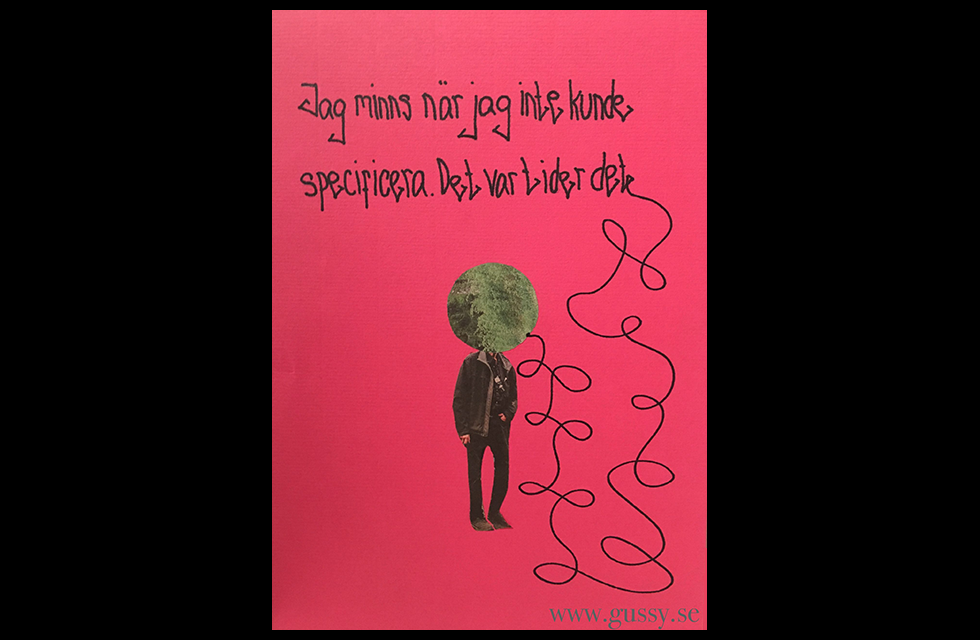 Jag minns när jag inte kunde
specificera. Det var tider det
www.gussy.se